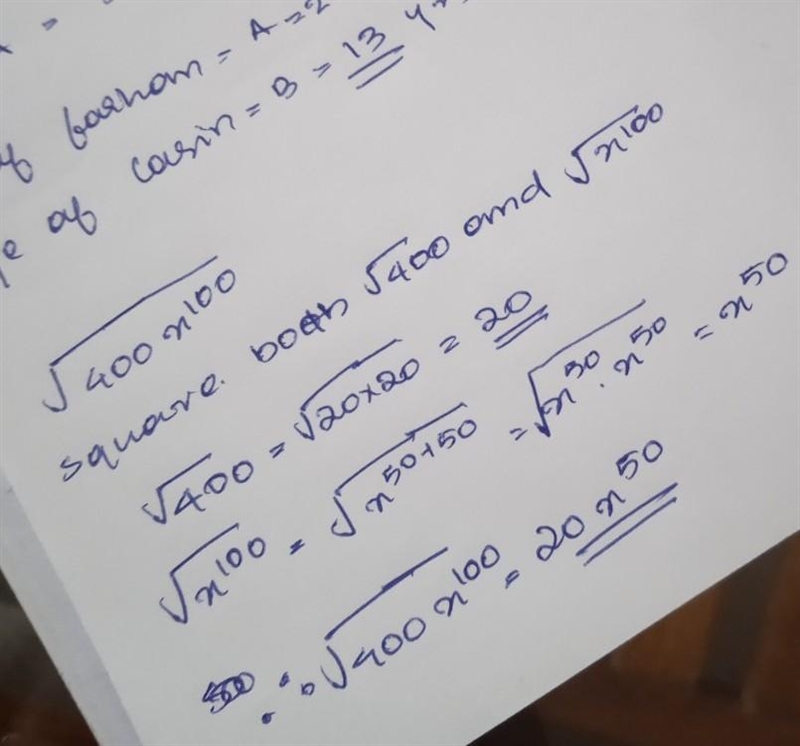 of farhan = A = 2
of cousin = B = 13
√400x¹⁰⁰
square. both √400 and √x¹⁰⁰
√400 = √20×20 = 20
√x¹⁰⁰ = √x⁵⁰⁺⁵⁰ = √x⁵⁰ · x⁵⁰ = x⁵⁰
∴ √400x¹⁰⁰ = 20x⁵⁰